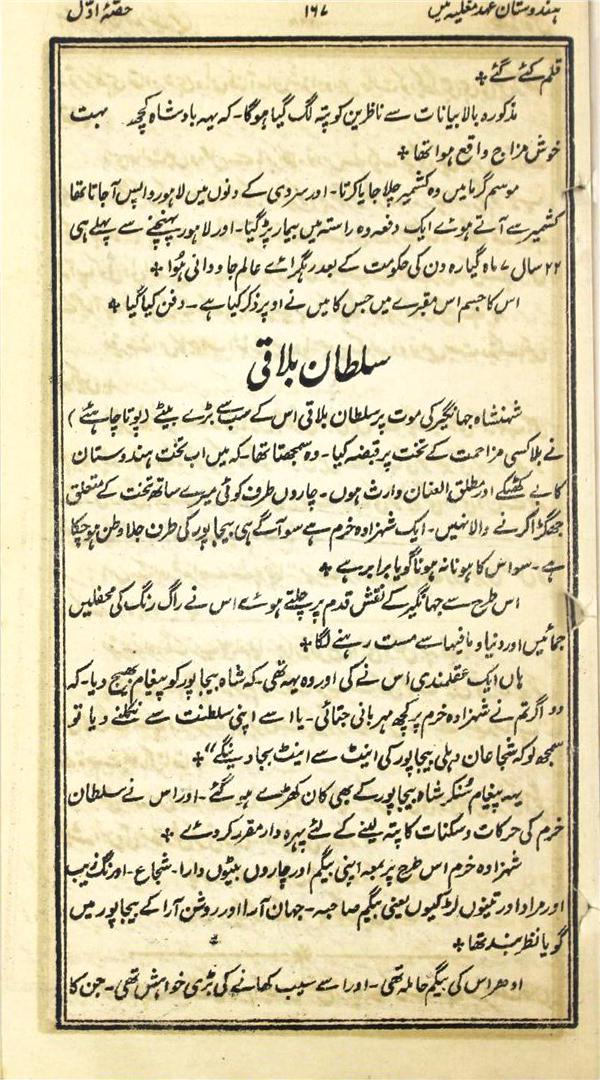 ہندوستان عہد مغلیہ میں ۱۶۷ حصۂ اوّل
قلم کئے گئے ⁜
مذکورہ بالا بیانات سے ناظرین کو پتہ لگ گیا ہوگا۔ کہ یہہ بادشاہ کچھ بہت
خوش مزاج واقع ہوا تھا ⁜
موسم گرما میں وہ کشمیر چلا جایا کرتا۔ اور سردی کے دنوں میں لاہور واپس آجاتا تھا
کشمیر سے آتے ہوئے ایک دفعہ وہ راستہ میں بیمار پڑ گیا۔ اور لاہور پہنچنے سے پہلے ہی
۲۲ سال ۷ ماہ گیارہ دن کی حکومت کے بعد رہگرائے عالم جاودانی ہُوا ⁜
اس کا جسم اس مقبرے میں جس کا میں نے اوپر ذکر کیا ہے۔ دفن کیا گیا ⁜
سلطان بلاقی
شہنشاہ جہانگیر کی موت پر سلطان بلاقی اس کے سب سے بڑے بیٹے (پوتا چاہئے)
نے بلا کسی مزاحمت کے تخت پر قبضہ کیا۔ وہ سمجھتا تھا۔ کہ میں اب تخت ہندوستان
کا بے کھٹکے اور مطلق العنان وارث ہوں۔ چاروں طرف کوئی میرے ساتھ تخت کے متعلق
جھگڑا کرنے والا نہیں۔ ایک شہزادہ خرم ہے سو آگے ہی بیجاپور کی طرف جلاوطن ہوچکا
ہے۔ سو اس کا ہونا نہ ہونا گویا برابر ہے ⁜
اس طرح سے جہانگیر کے نقش قدم پر چلتے ہوئے اس نے راگ رنگ کی محفلیں
جمائیں اور دنیا و مافیہا سے مست رہنے لگا ⁜
ہاں ایک عقلمندی اس نے کی اور وہ یہہ تھی۔ کہ شاہ بیجاپور کو پیغام بھیج دیا۔ کہ
”اگر تم نے شہزادہ خرم پر کچھ مہربانی جتائی۔ یا اسے اپنی سلطنت سے نکلنے دیا تو
سمجھ لو کہ شجاعان دہلی بیجاپور کی اینٹ سے اینٹ بجا دینگے“ ⁜
یہہ پیغام سُنکر شاہ بیجاپور کے بھی کان کھڑے ہو گئے۔ اور اس نے سلطان
خرم کی حرکات و سکنات کا پتہ لینے کے لئے پہرہ دار مقرر کر دئے ⁜
شہزادہ خرم اس طرح پر بمعہ اپنی بیگم اور چاروں بیٹوں دارا۔ شجاع۔ اورنگ زیب
اور مراد اور تینوں لڑکیوں یعنی بیگم صاحبہ۔ جہان آرا اور روشن آرا کے بیجاپور میں
گویا نظر بند تھا ⁜
ادھر اس کی بیگم حاملہ تھی۔ اور اسے سیب کھانے کی بڑی خواہش تھی۔ جن کا